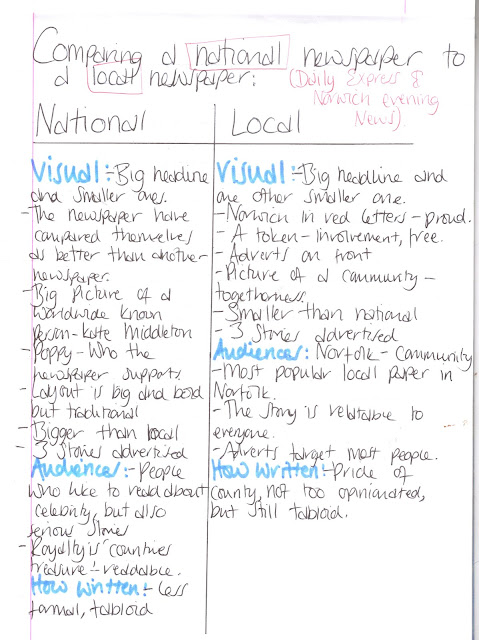 Comparing a national newspaper to
a local newspaper:
(Daily Express &
Norwich evening
News)
National
Visual:- Big headline
and smaller ones.
- The newspaper have
compared themselves
as better than another
newspaper.
- Big Picture of a
worldwide known
person - Kate Middleton
- Poppy - Who the
newspaper supports.
- Layout is big and bold
but traditional
- Bigger than local
- 3 Stories advertised
Audiences:- People
who like to read about
celebrity, but also
serious stories
- Royalty is countries
treasure - readable.
How written:- Less
formal, tabloid
Local
Visual:- Big headline and
one other smaller one.
- Norwich in red letters - proud.
- A token - involvement, free.
- Adverts on front
- Picture of a community -
togetherness.
- Smaller than national
- 3 Stories advertised
Audiences: Norfolk - Community
- Most popular local paper in
Norfolk.
- The story is relatable to
everyone.
- Adverts target most people.
How Written:- Pride of
county, not too opinionated,
but still tabloid.